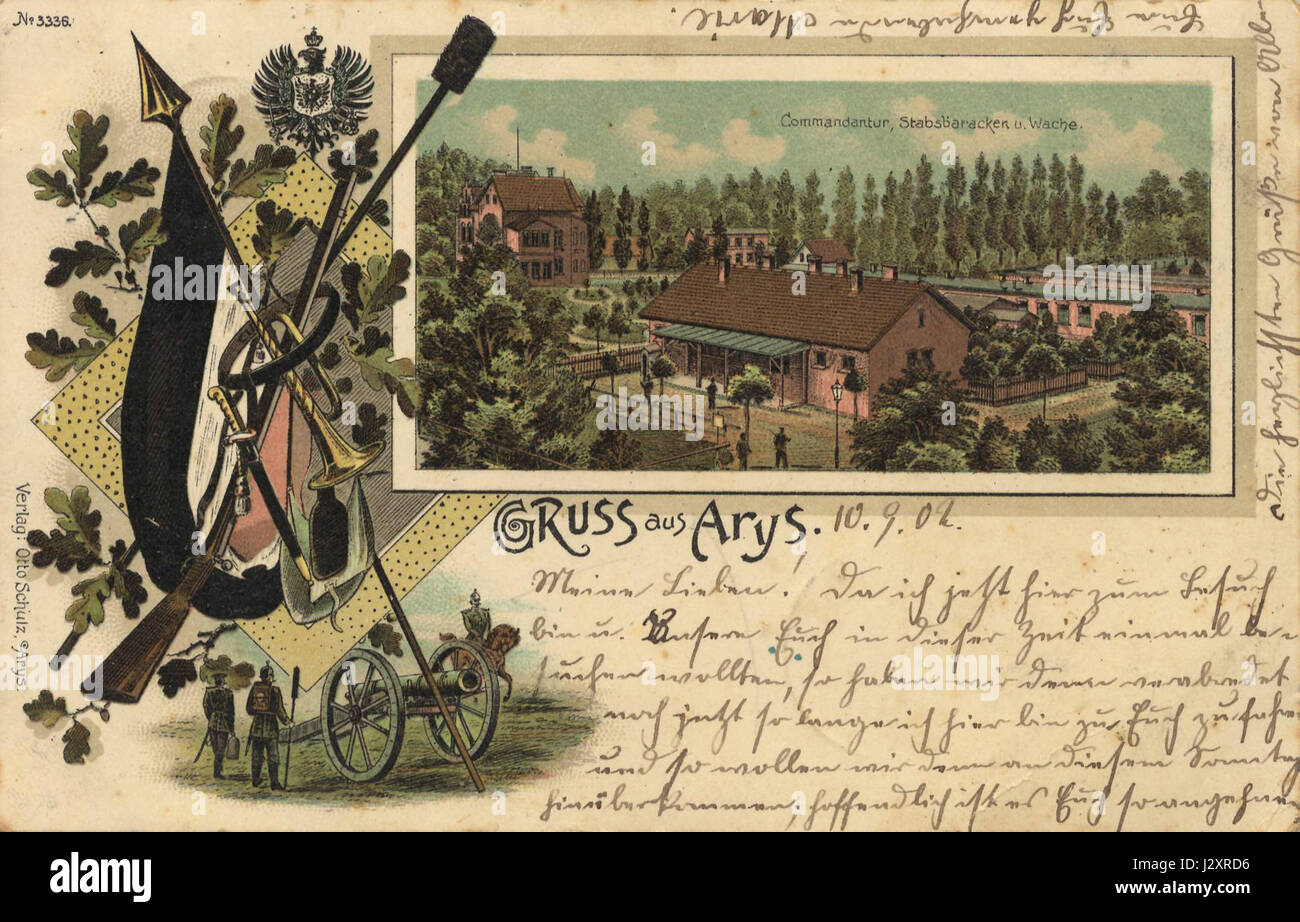 No 3336.
Commandantur, Stabsbaracken u. Wache.
Gruss aus Arys. 10.9.02.
Meine Lieben! Da ich jetzt hier zum Besuch
bin u. Unsere Euch in dieser Zeit einmal be-
suchen wollten, so haben wir denn verabredet
noch jetzt so lange ich hier bin zu Euch zu fahre
und so wollen wir denn an diesem Sonntag
hinüberkommen, hoffendlich ist es Euch so angehne
Die herzlichsten Grüße von
Marie.
Verlag: Otto Schulz, Arys.
alamy
alamy
Image ID: J2XRD6
www.alamy.com